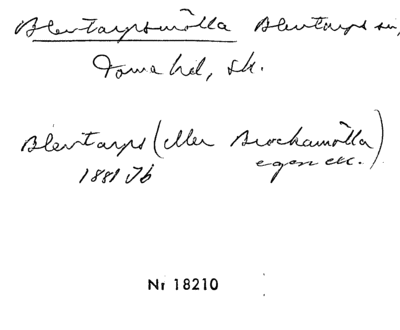 Blentarpsmölla Blentarps sn,
Torna hd, Sk.
Blentarps (eller Brockamölla)
1881 Jb egen etc.
Nr 18210